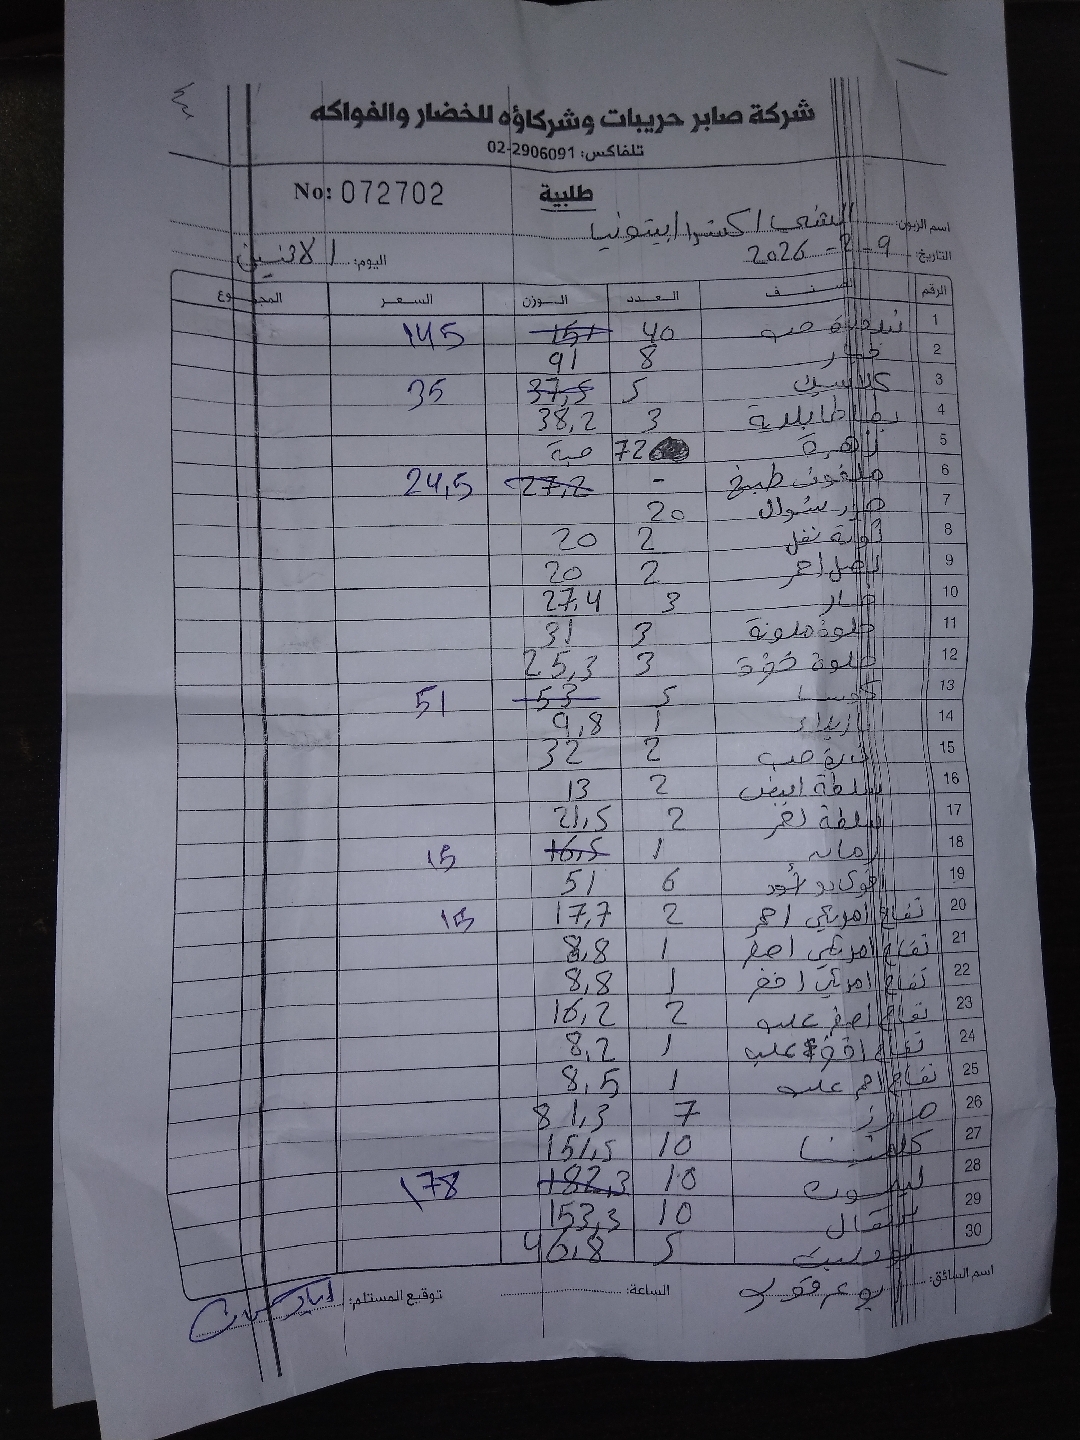 شركة صابر حريبات وشركاؤه للخضار والفواكه
تلفاكس: 02-2906091
طلبية
No: 072702
اسم الزبون: الشني / اكسترا / بيتونيا
التاريخ: 9-2-2026 اليوم: الاثنين
الرقم الصنف العدد الوزن السعر المجموع
1 بندورة حب 40 151 145
2 خيار 8 91
3 كلاسيك 5 37,5 35
4 بطاطا بلدية 3 38,2
5 زهرة 72 حبة
6 ملفوف طبيخ - 27,2 24,5
7 شوال 20
8 2 20
9 بصل احمر 2 20
10 3 27,4
11 حلوة ملونة 3 31
12 حلوة 3 25,3
13 كوسا 5 53 51
14 1 9,8
15 ذرة حب 2 32
16 سلطة ابيض 2 13
17 سلطة 2 21,5
18 رمان 1 16,5 15
19 افوكادو 6 51
20 تفاح امريكي احمر 2 17,7 15
21 تفاح امريكي اصفر 1 8,8
22 تفاح امريكي اخضر 1 8,8
23 تفاح اصفر علب 2 16,2
24 تفاح علب 1 8,2
25 تفاح احمر علب 1 8,5
26 موز 7 81,3
27 كلمنتينا 10 151,5
28 ليمون 10 182,3 178
29 برتقال 10 153,3
30 بوملي 5 46,8
اسم السائق: الساعة: توقيع المستلم: